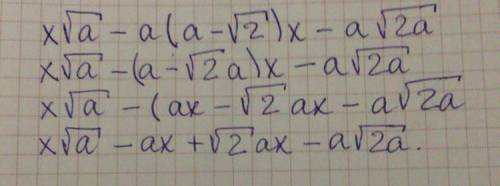 x√a - a(a-√2)x - a√2a
x√a - (a-√2a)x - a√2a
x√a - (ax - √2ax - a√2a
x√a - ax + √2ax - a√2a.